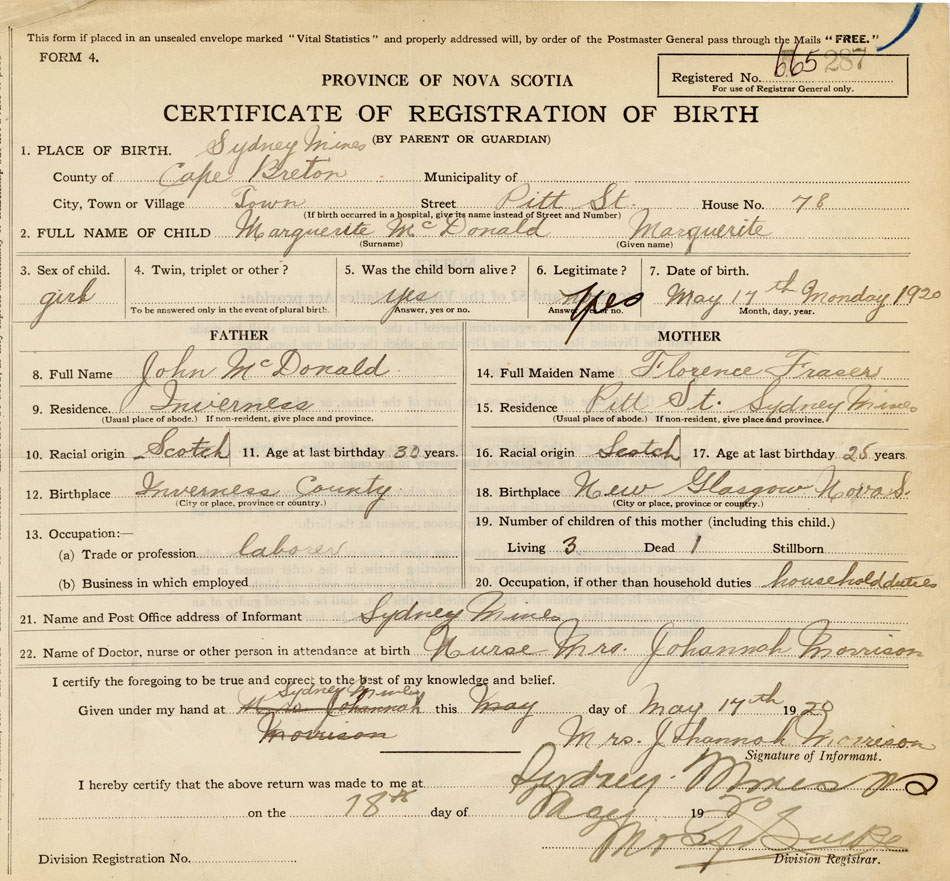 This form if placed in an unsealed envelope marked "Vital Statistics" and properly addressed will, by order of the Postmaster General pass through the Mails "FREE."
FORM 4.
Registered No. 665 287
For use of Registrar General only.
PROVINCE OF NOVA SCOTIA
CERTIFICATE OF REGISTRATION OF BIRTH
(BY PARENT OR GUARDIAN)
1. PLACE OF BIRTH. Sydney Mines
County of Cape Breton Municipality of
City, Town or Village Town Street Pitt St. House No. 78
(If birth occurred in a hospital, give its name instead of Street and Number)
2. FULL NAME OF CHILD Marguerite McDonald Marguerite
(Surname) (Given name)
3. Sex of child. 4. Twin, triplet or other? 5. Was the child born alive? 6. Legitimate? 7. Date of birth.
girl yes yes May 17th Monday 1920
To be answered only in the event of plural birth. Answer, yes or no. Answer, yes or no. Month, day, year.
FATHER
8. Full Name John McDonald
9. Residence. Inverness
(Usual place of abode.) If non-resident, give place and province.
10. Racial origin Scotch 11. Age at last birthday 30 years.
12. Birthplace Inverness County
(City or place, province or country.)
13. Occupation:—
(a) Trade or profession laborer
(b) Business in which employed
MOTHER
14. Full Maiden Name Florence Fraser
15. Residence Pitt St. Sydney Mines
(Usual place of abode.) If non-resident, give place and province.
16. Racial origin Scotch 17. Age at last birthday 25 years.
18. Birthplace New Glasgow Nova S.
(City or place, province or country.)
19. Number of children of this mother (including this child.)
Living 3 Dead 1 Stillborn
20. Occupation, if other than household duties household duties
21. Name and Post Office address of Informant Sydney Mines
22. Name of Doctor, nurse or other person in attendance at birth Nurse Mrs. Johannah Morrison
I certify the foregoing to be true and correct to the best of my knowledge and belief.
Sydney Mines
Given under my hand at Mrs. Johannah this May day of May 17th 1920
Morrison Mrs. Johannah Morrison
Signature of Informant.
I hereby certify that the above return was made to me at Sydney Mines
on the 18th day of May 1920
Division Registration No. Division Registrar.